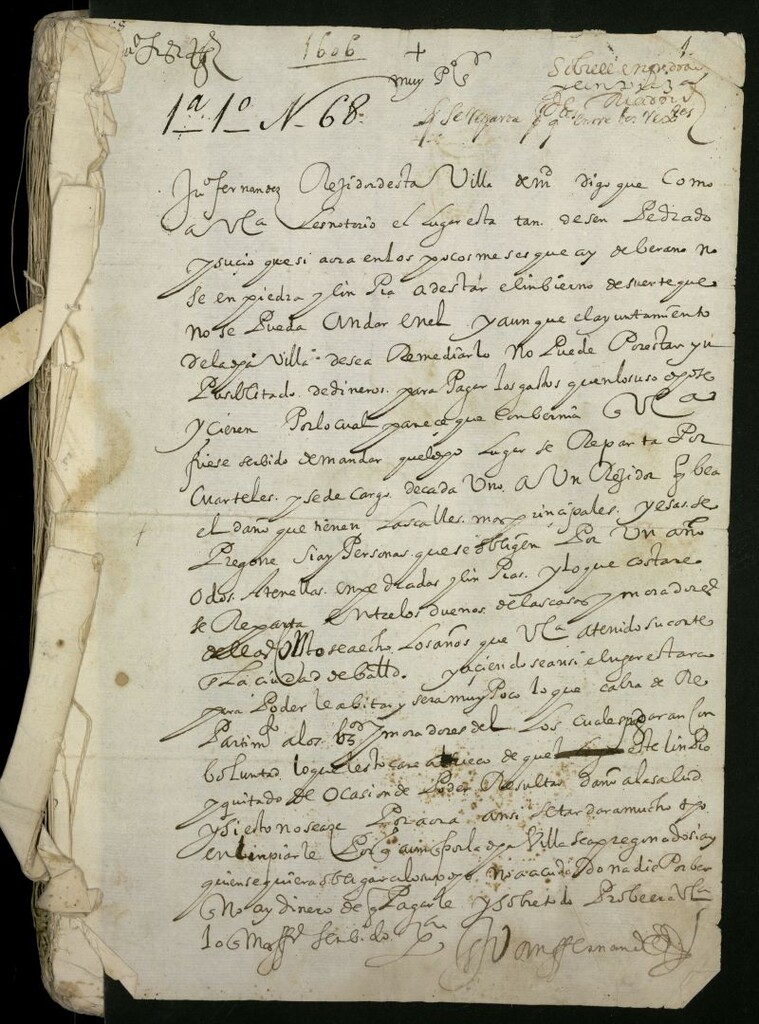 1606
+
1
muy Pºˢ sʳ
1ª 1º N 68
Juº fernandez Rejidor desta Villa de mᵈ digo que Como
a Vª es notorio el lugar esta tan desen Pedrado
y suçio que si aora en los pocos meses que ay de berano no
se en piedra y lin Pia a de star el inbierno de suerte que
no se Pueda andar en el y aun que el ayuntamiento
de la dha Villa desea Remediarlo no Puede Por estar yn
Pusiblitado de dineros para Pagar los gastos que en lo suso dho se
ycieren Por lo cual pareçe que Conbernia q Vª
fuese serbido de mandar quel dho lugar se Reparta Por
Cuarteles y se de cargo de cada Uno a Un Rejidor q bea
el daño que tienen las calles mas prinçipales y esas se
Pregone si ay Personas que se obligen Por Un año
o dos a tenellas enpedradas y lin Pias y lo que costare
se Reparta entre los dueños de las casas y moradores
dellas como se a echo los años que Vª a tenido su corte
en La ciudad de balld. y aciendose ansi el lugar estara
para Poder le abitar y sera muy Poco lo que cabra de Re
Partimᵗº a los bºˢ y moradores del los cuales daran con
boluntad lo que les tocare a trueco de quel este linpio
y quitado de ocasion de Poder Resultar daño a la salud
y si esto no se açe Por aora ansi se tardara mucho tpo
en linpiarse Porq aunq Por la dha Villa se a pregonado si ay
quien se quiera obligar a lo suso dho no a acudido nadie Por ber
q no ay dinero de q Pagarle y sobre todo Probeera Vª
lo q mas fuere serbido
Juan fernandez